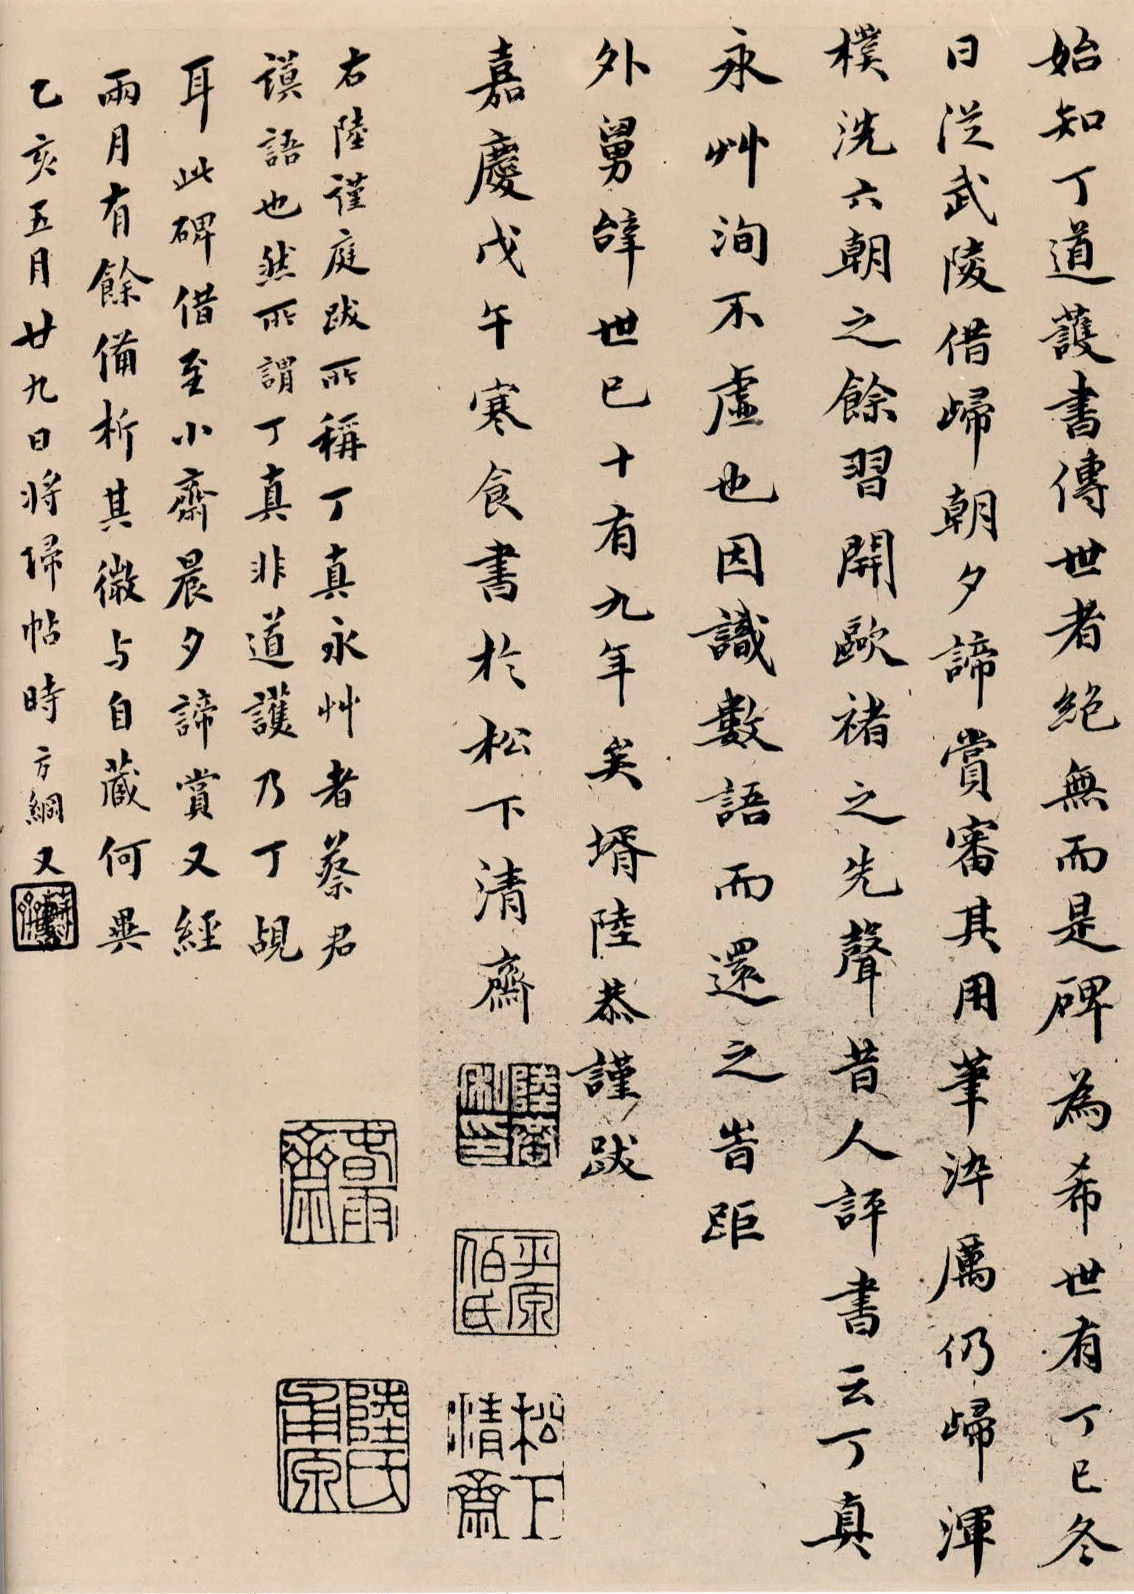 始知丁道護書傳世者絕無而是碑為希世有丁巳冬
日從武陵借歸朝夕諦賞審其用筆泠厲仍歸渾
樸洗六朝之餘習開歐褚之先聲昔人評書云丁真
永艸洵不虛也因識數語而還之旹距
外舅辭世已十有九年矣壻陸恭謹跋
嘉慶戊午寒食書於松下清齋
右陸謹庭跋所稱丁真永艸者蔡君
謨語也然所謂丁真非道護乃丁覘
耳此碑借至小齋晨夕諦賞又經
兩月有餘備析其微与自藏何異
乙亥五月廿九日將歸帖時方綱又
平原伯氏
松下清齋
春雨齋